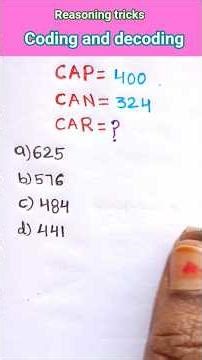 Reasoning tricks
Coding and decoding
CAP= 400
CAN= 324
CAR=?
a) 625
b) 576
c) 484
d) 441